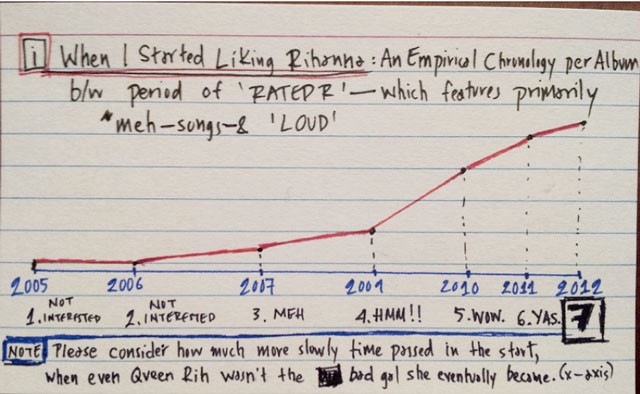 i When I Started Liking Rihanna: An Empirical Chronology per Album
b/w period of 'RATED R' — which features primarily
meh-songs-& 'LOUD'
2005 2006 2007 2009 2010 2011 2012
1. NOT INTERESTED 2. NOT INTERESTED 3. MEH 4. HMM!! 5. WOW. 6. YAS. 7
NOTE Please consider how much more slowly time passed in the start,
when even Qveen Rih wasn't the bad gal she eventually became. (x-axis)